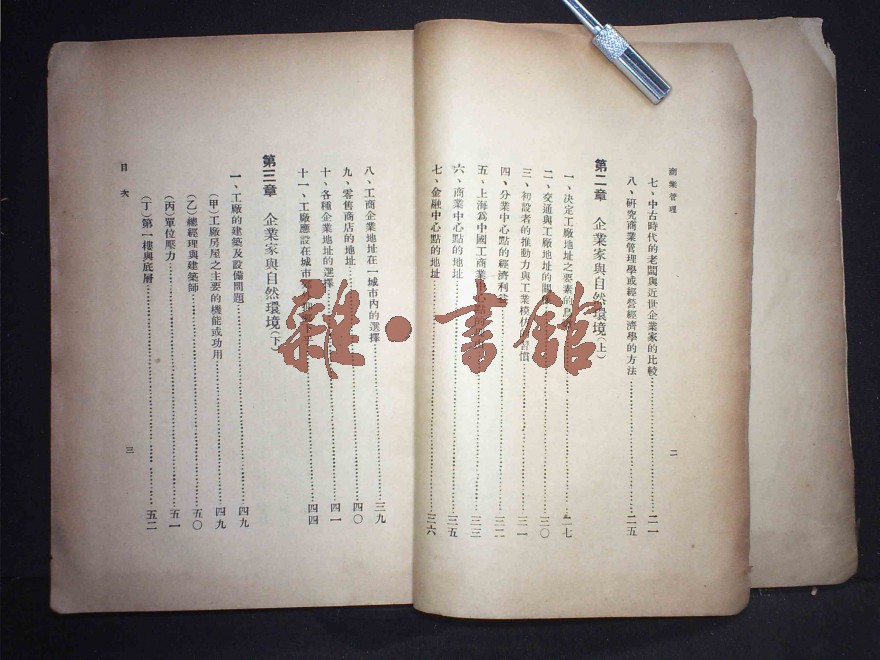 商業管理
二
七、中古時代的老闆與近世企業家的比較……二一
八、研究商業管理學或經營經濟學的方法……二五
第二章 企業家與自然環境(上)
一、決定工廠地址之要素的……二七
二、交通與工廠地址的關……三〇
三、初設者的推動力與工業模……習慣……三一
四、分業中心點的經濟利益……三二
五、上海為中國工商業中心點的……三三
六、商業中心點的地址……三五
七、金融中心點的地址……三六
八、工商企業地址在一城市內的選擇……三九
九、零售商店的地址……四〇
十、各種企業地址的選擇……四一
十一、工廠應設在城市……四四
第三章 企業家與自然環境(下)
一、工廠的建築及設備問題……四九
(甲)工廠房屋之主要的機能或功用……四九
(乙)總經理與建築師……五〇
(丙)單位壓力……五一
(丁)第一樓與底層……五二
目次
三
雜·書館